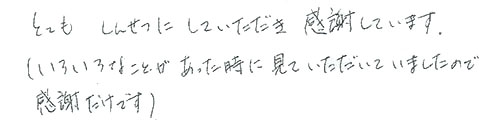 とても しんせつに していただき 感謝しています.
(いろいろなことが あった時に 見て いただいて いましたので
感謝だけです)